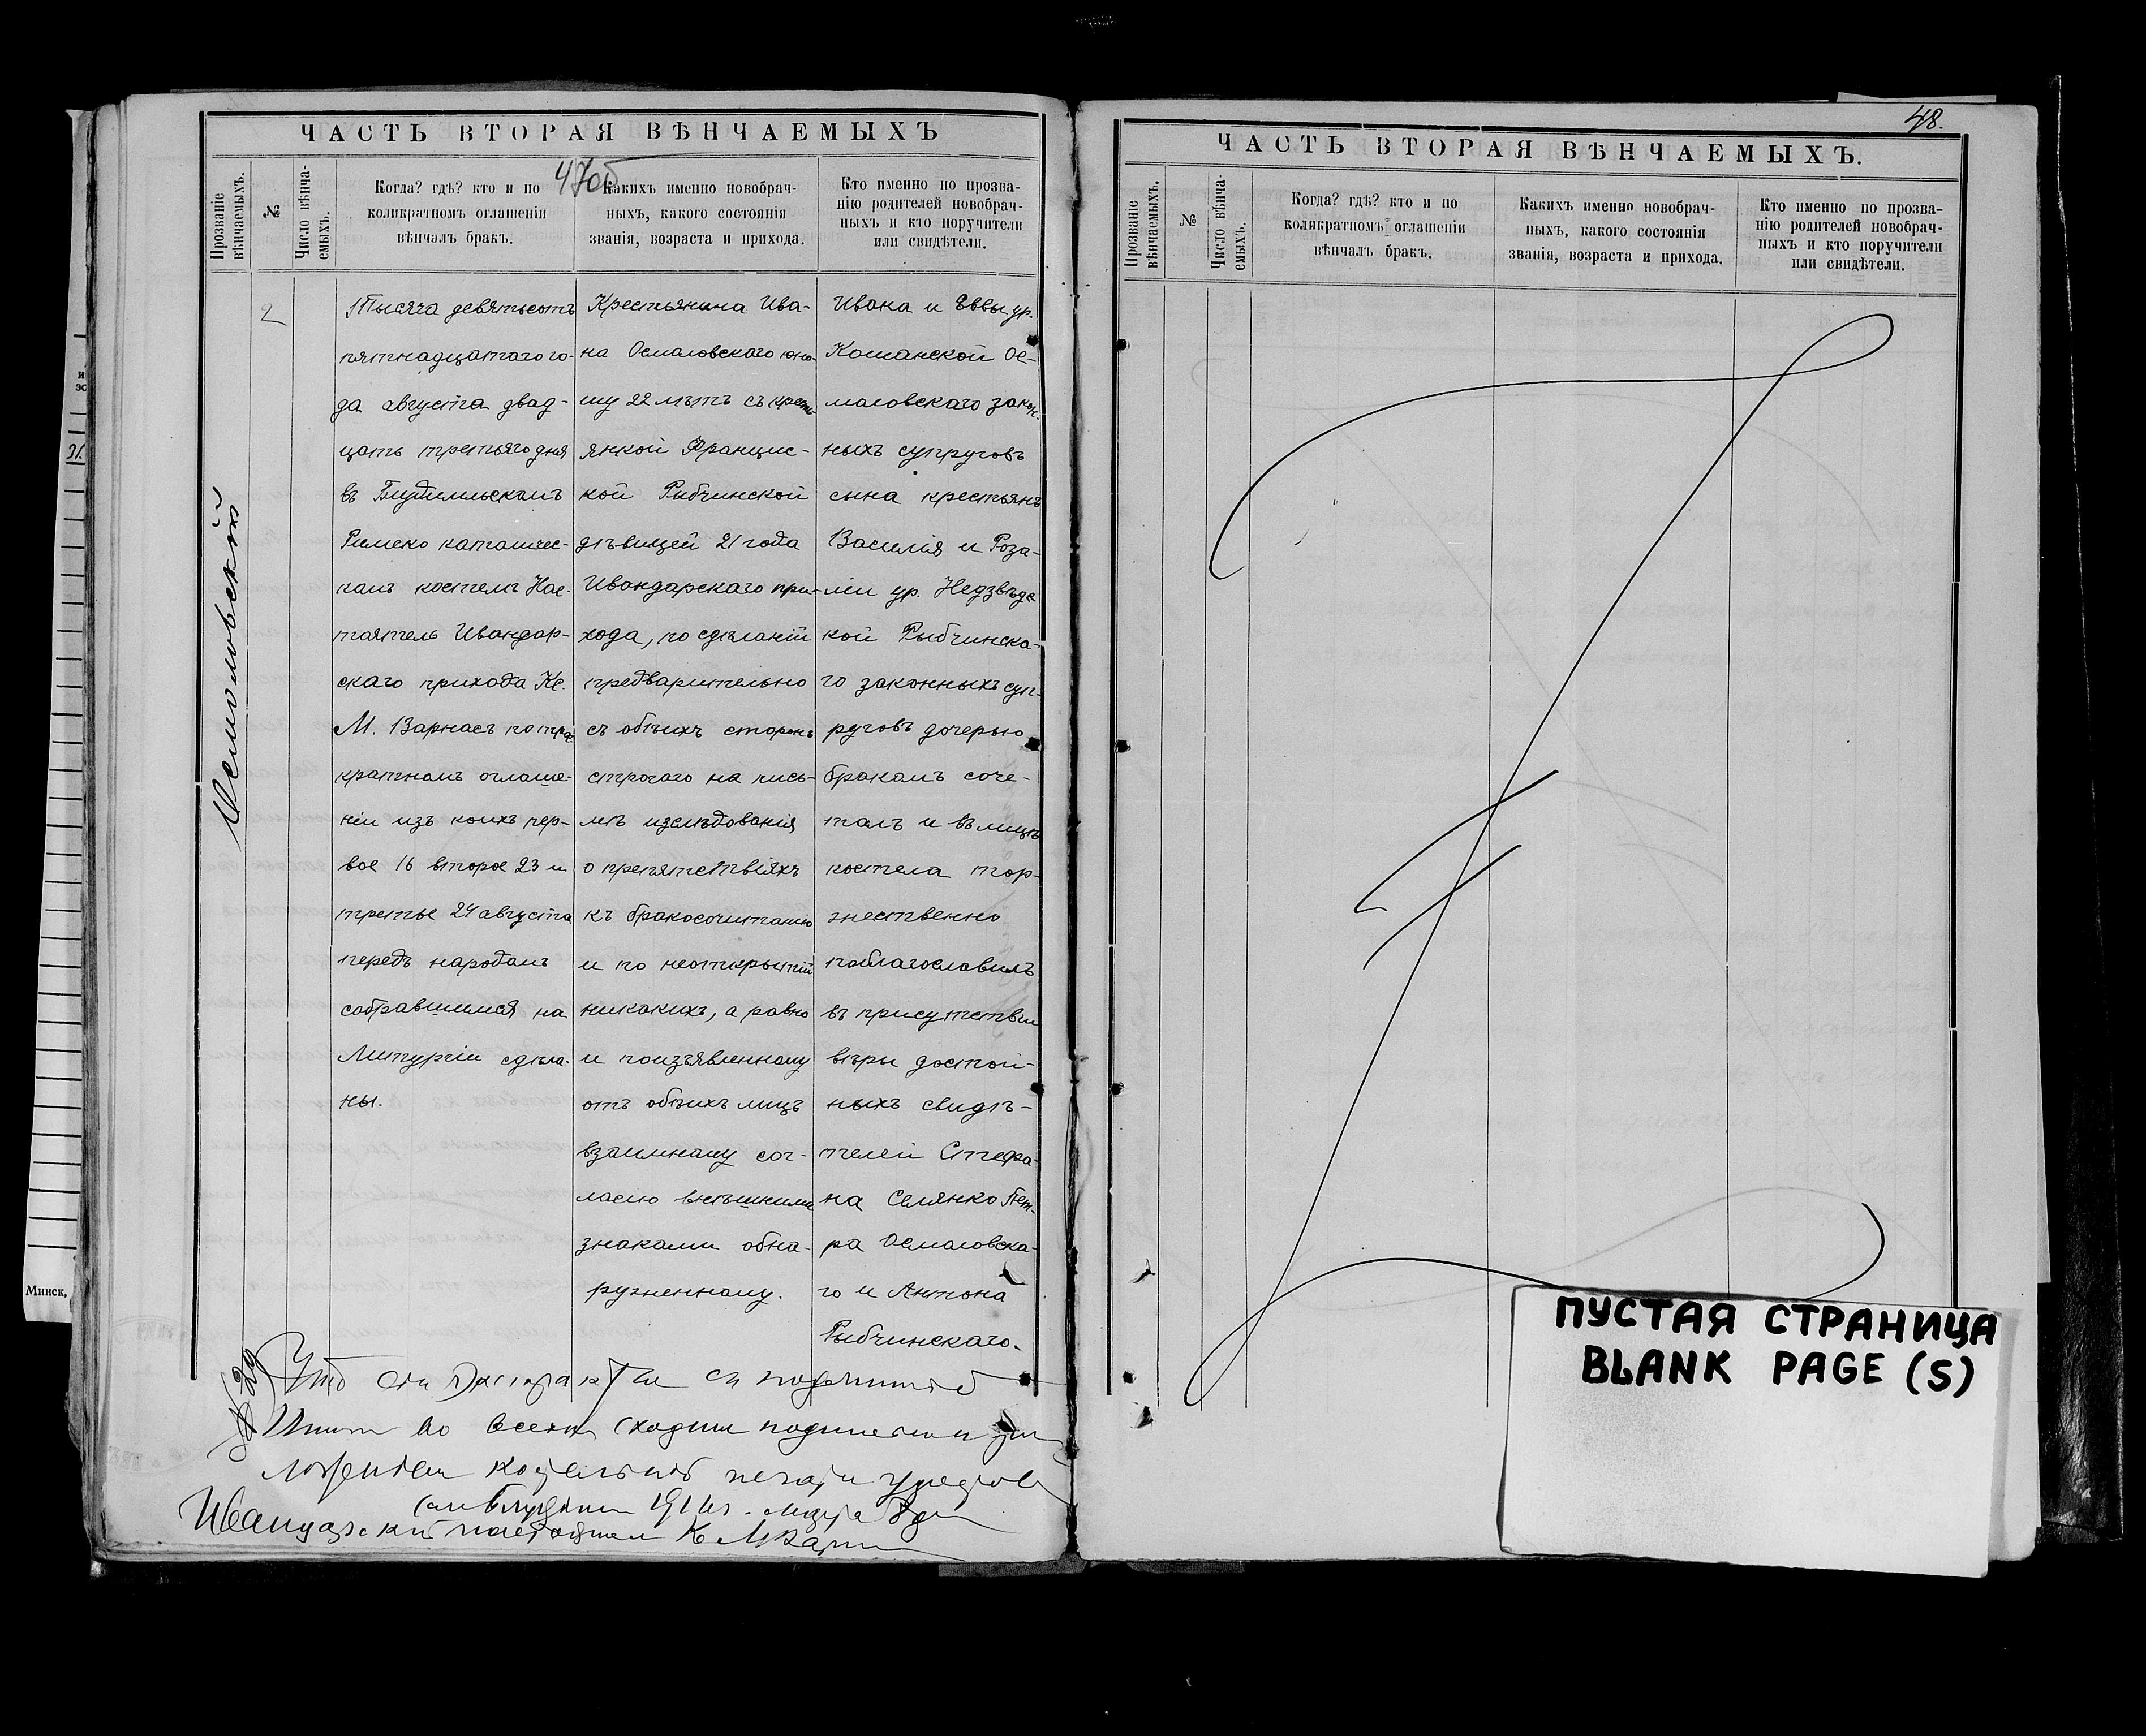 ЧАСТЬ ВТОРАЯ ВѢНЧАЕМЫХЪ
47об
Прозваніе вѣнчаемыхъ.
№
Число вѣнча-
емыхъ.
Когда? гдѣ? кто и по
коликратномъ оглашеніи
вѣнчалъ бракъ.
Какихъ именно новобрач-
ныхъ, какого состоянія
званія, возраста и прихода.
Кто именно по прозва-
нію родителей новобрач-
ныхъ и кто поручители
или свидѣтели.
2
Тысяча девятьсотъ
пятнадцатаго го-
да августа двад-
цать третьяго дня
въ
Римско католичес-
комъ костелѣ Нас-
тоятель Ивандар-
скаго прихода Кс.
М. Варнасъ по трое
кратномъ оглаше-
ніи изъ коихъ пер-
вое 16 второе 23 и
третье 24 августа
передъ народомъ
собравшимся на
Литургіи сдѣла-
ны.
Крестьянина Ива-
на Осмоловскаго юно-
шу 22 лѣтъ съ кресть-
янкой Францис-
кой Рыбчинской
дѣвицей 21 года
Ивандарскаго при-
хода, по сдѣланіи
предварительно
съ обѣихъ сторонъ
строгаго на пись-
мѣ изслѣдованія
о препятствіяхъ
къ бракосочитанію
и по неоткрытіи
никакихъ, а равно
и поизъявленному
отъ обѣихъ лицъ
взаимному сог-
ласію внѣшними
знаками обна-
руженному.
Ивана и Еввы ур.
Кошанской Ос-
моловскаго закон-
ныхъ супруговъ
сына крестьянъ
Василія и Роза-
ліи ур. Недзвѣдс
кой Рыбчинска-
го законныхъ суп-
руговъ дочерью
бракомъ соче-
талъ и въ лицѣ
костела тор-
жественно
поблагословилъ
въ присутствіи
вѣры достой-
ныхъ свидѣ-
телей Стефа-
на Селянко Пет-
ра Осмоловска-
го и Антона
Рыбчинскаго.
Осмоловскій
Что сіи
во всемъ сходны
печати
Ивандарскій настоятель Кс М Варнас
48.
ЧАСТЬ ВТОРАЯ ВѢНЧАЕМЫХЪ.
Прозваніе вѣнчаемыхъ.
№
Число вѣнча-
емыхъ.
Когда? гдѣ? кто и по
коликратномъ оглашеніи
вѣнчалъ бракъ.
Какихъ именно новобрач-
ныхъ, какого состоянія
званія, возраста и прихода.
Кто именно по прозва-
нію родителей новобрач-
ныхъ и кто поручители
или свидѣтели.
ПУСТАЯ СТРАНИЦА
BLANK PAGE (S)
Минск,